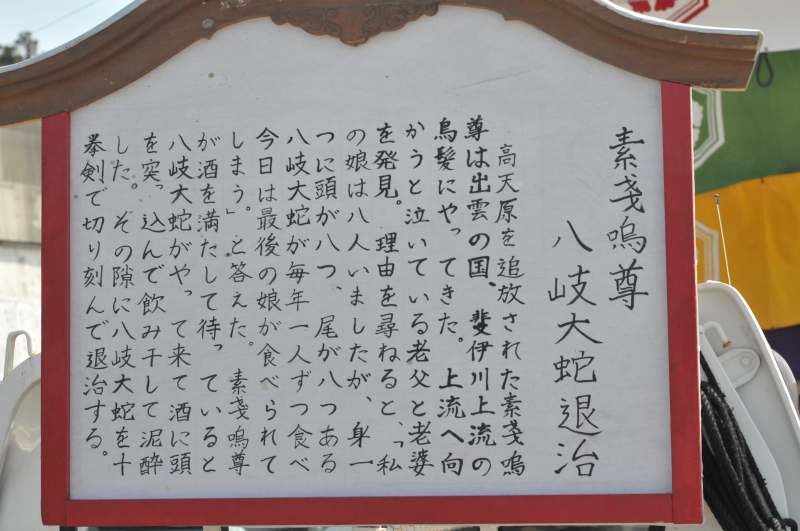 素戔嗚尊
八岐大蛇退治
高天原を追放された素戔嗚
尊は出雲の国、斐伊川上流の
鳥髪にやってきた。上流へ向
かうと泣いている老父と老婆
を発見。理由を尋ねると、「私
の娘は八人いましたが、身一
つに頭が八つ、尾が八つある
八岐大蛇が毎年一人ずつ食べ
今日は最後の娘が食べられて
しまう」と答えた。素戔嗚尊
が酒を満たして待っていると
八岐大蛇がやって来て酒に頭
を突っ込んで飲み干して泥酔
した。その隙に八岐大蛇を十
拳剣で切り刻んで退治する。